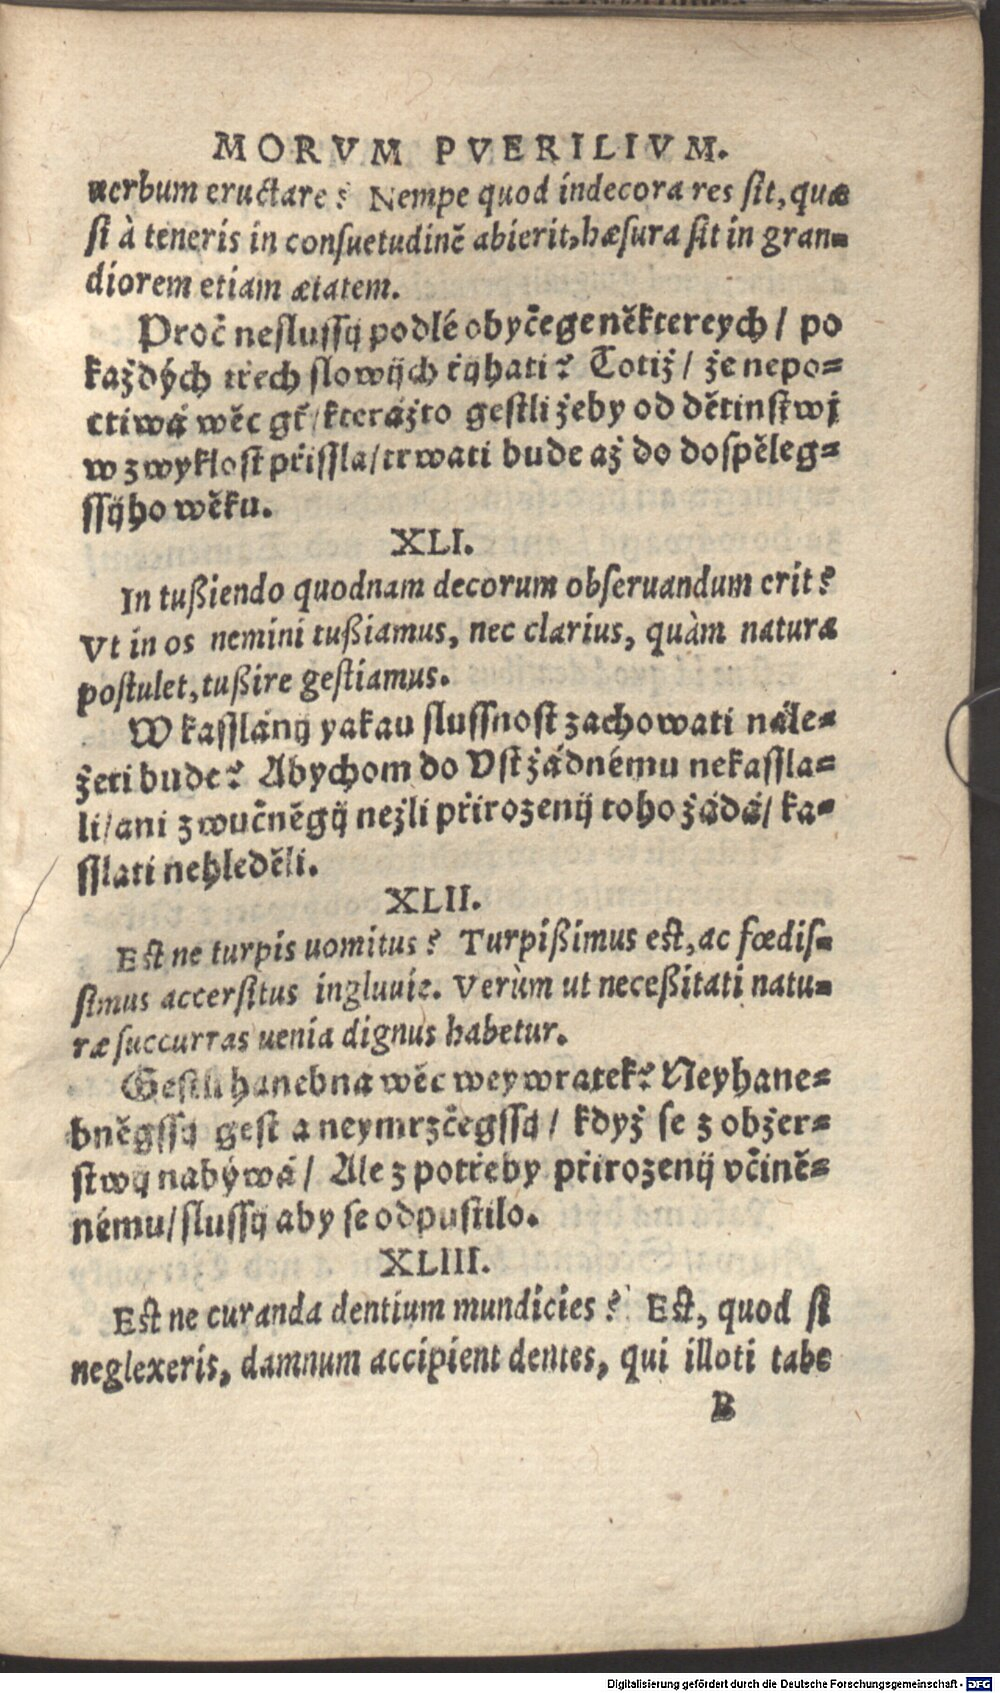 MORVM PVERILIVM.
uerbum eructare? Nempe quod indecora res sit, quæ
si à teneris in consuetudinē abierit, hæsura sit in gran-
diorem etiam ætatem.
Proč neslussý podlé obyčege některeych / po
každých třech slowých řýhati? Totiž / že nepo-
ctiwá wěc gt / kterážto gestližeby od dětinstwj
w zwyklost přissla / trwati bude až do dospěleg-
ssýho wěku.
XLI.
In tußiendo quodnam decorum obseruandum erit?
Vt in os nemini tußiamus, nec clarius, quàm natura
postulet, tußire gestiamus.
W kasslánÿ yakau slussnost zachowati nále-
žeti bude? Abychom do Vst žádnému nekassla-
li / ani zwučněgÿ nežli přirozenÿ toho žádá / ka-
sslati nehleděli.
XLII.
Est ne turpis uomitus? Turpißimus est, ac fœdis-
simus accersitus ingluuie. Verùm ut neceßitati natu-
ræ succurras uenia dignus habetur.
Gestli hanebna wěc weywratek? Neyhane-
bněgssý gest a neymrzčegssý / když se z obžer-
stwý nabýwá / Ale z potřeby přirozenÿ včině-
nému / slussý aby se odpustilo.
XLIII.
Est ne curanda dentium mundicies? Est, quod si
neglexeris, damnum accipient dentes, qui illoti tabe
B
Digitalisierung gefördert durch die Deutsche Forschungsgemeinschaft - DFG